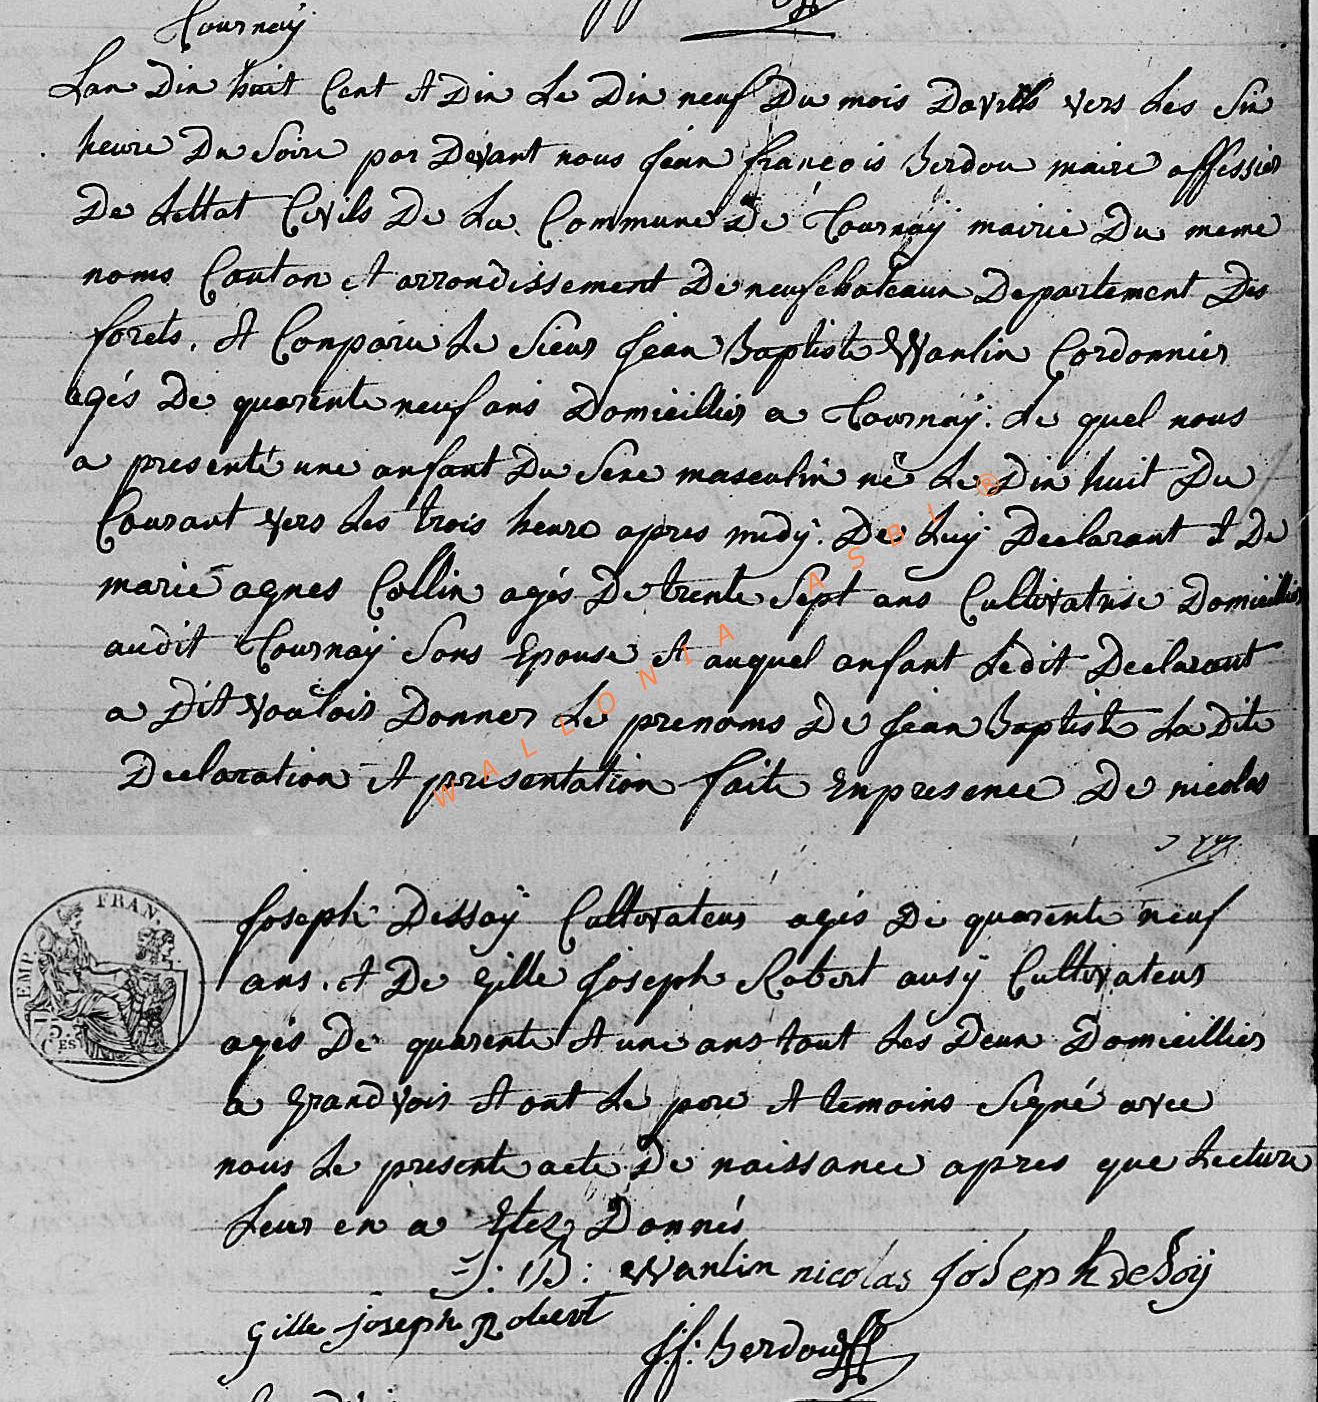 Tournay
Lan Dix huit Cent et Dix Le Dix neuf Du mois Davrils vers Les Six
heure Du Soire par Devant nous Jean francois herdou maire offessier
De Lettat Civils De La Commune De Tournay mairie Du meme
noms Canton et arrondissement De neufchateaux Departement Des
forets, et Comparu Le Sieur Jean Baptiste Wanlin Cordonnier
agés De quarente neuf ans Domicillier a Tournay. Le quel nous
a presenté une anfant Du Sexe masculin né Le Dix huit Du
Courant vers Les trois heure apres midy. De Luy Declarant et De
marie agnes Collin agés De trente Sept ans Cultivatrise Domicillier
audit Tournay Sons Epouse et auquel anfant Ledit Declarant
a Dit vouloir Donner Le prenoms De Jean Baptiste La Dite
Declaration et presentation faite En presence De nicolas
Joseph Dessoÿ Cultivateur agés De quarente neuf
ans. et De Gille Joseph Robert ausÿ Cultivateur
agés De quarente et une ans tout Les Deux Domicillier
a Grandvoir et ont Le pere et temoins Signé avec
nous Le presente acte De naissance apres que Lecture
Leur en a Etez Donnés
J: B: Wanlin nicolas Joseph desoÿ
Gille joseph Robert
j: f: herdou
EMP. FRAN.
75
CES
WALLONIA ASBL ®